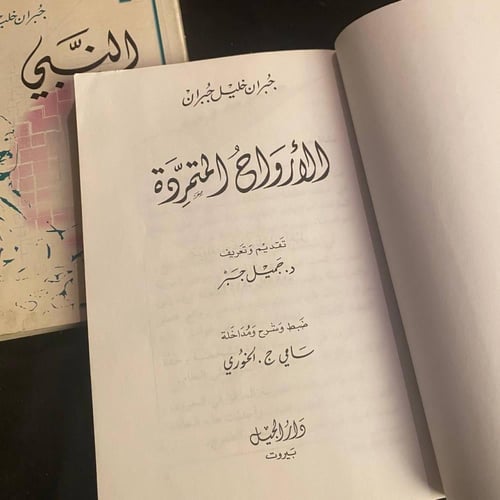 جبران خليل
النبي
جبران خليل جبران
الأرواح المتمردة
تقديم وتعريف
د. جميل جبر
ضبط وشرح ومداخلة
سامي ج. الخوري
دار الجيل
بيروت